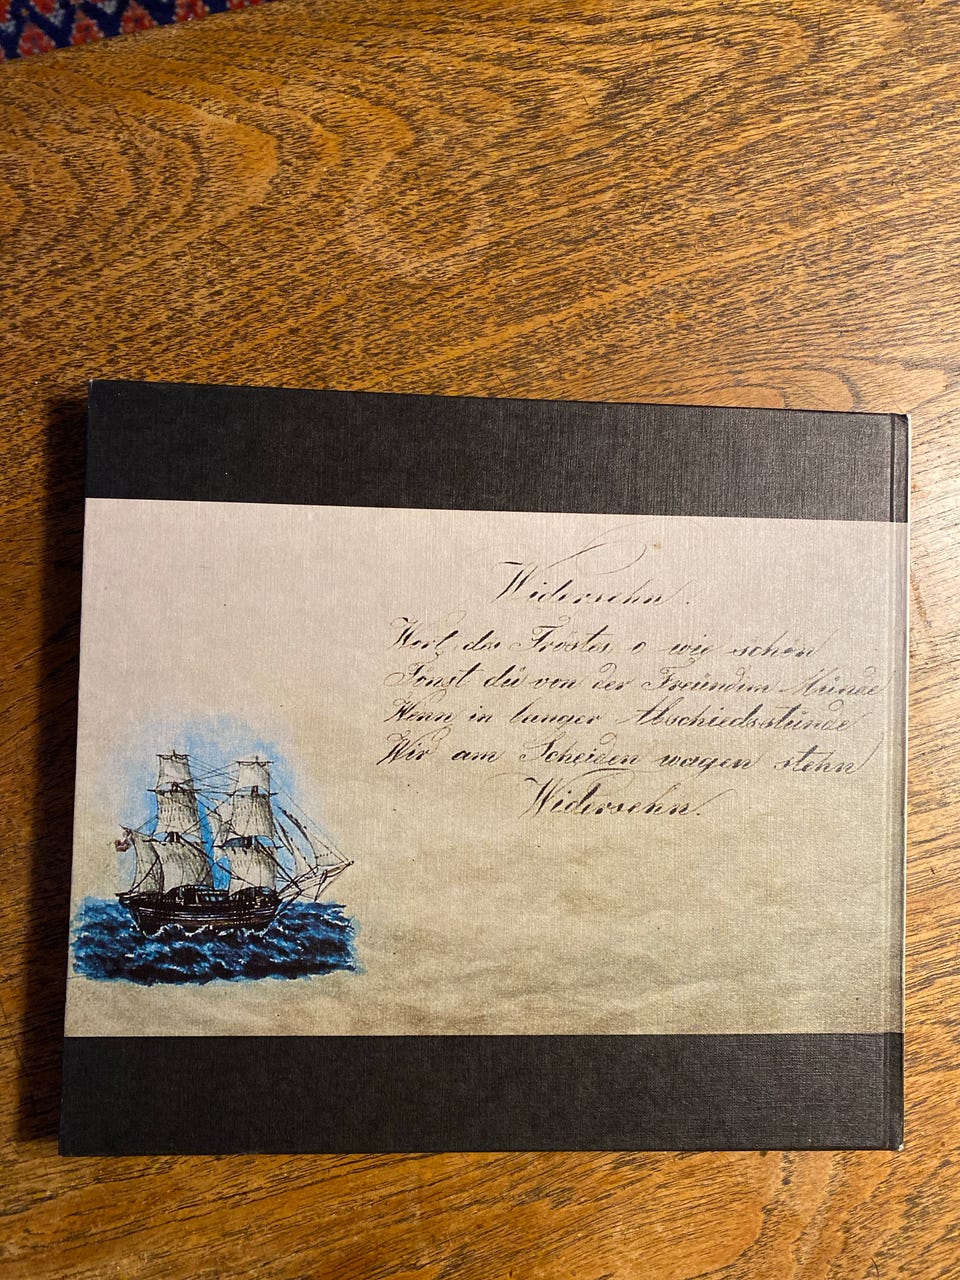 Widersehn.
Wort des Tröstes o wie schön
Tönst dü von der Freündinn Münde
Wenn in banger Abschiedsstünde
Wir am Scheiden wagen stehn
Widersehn.